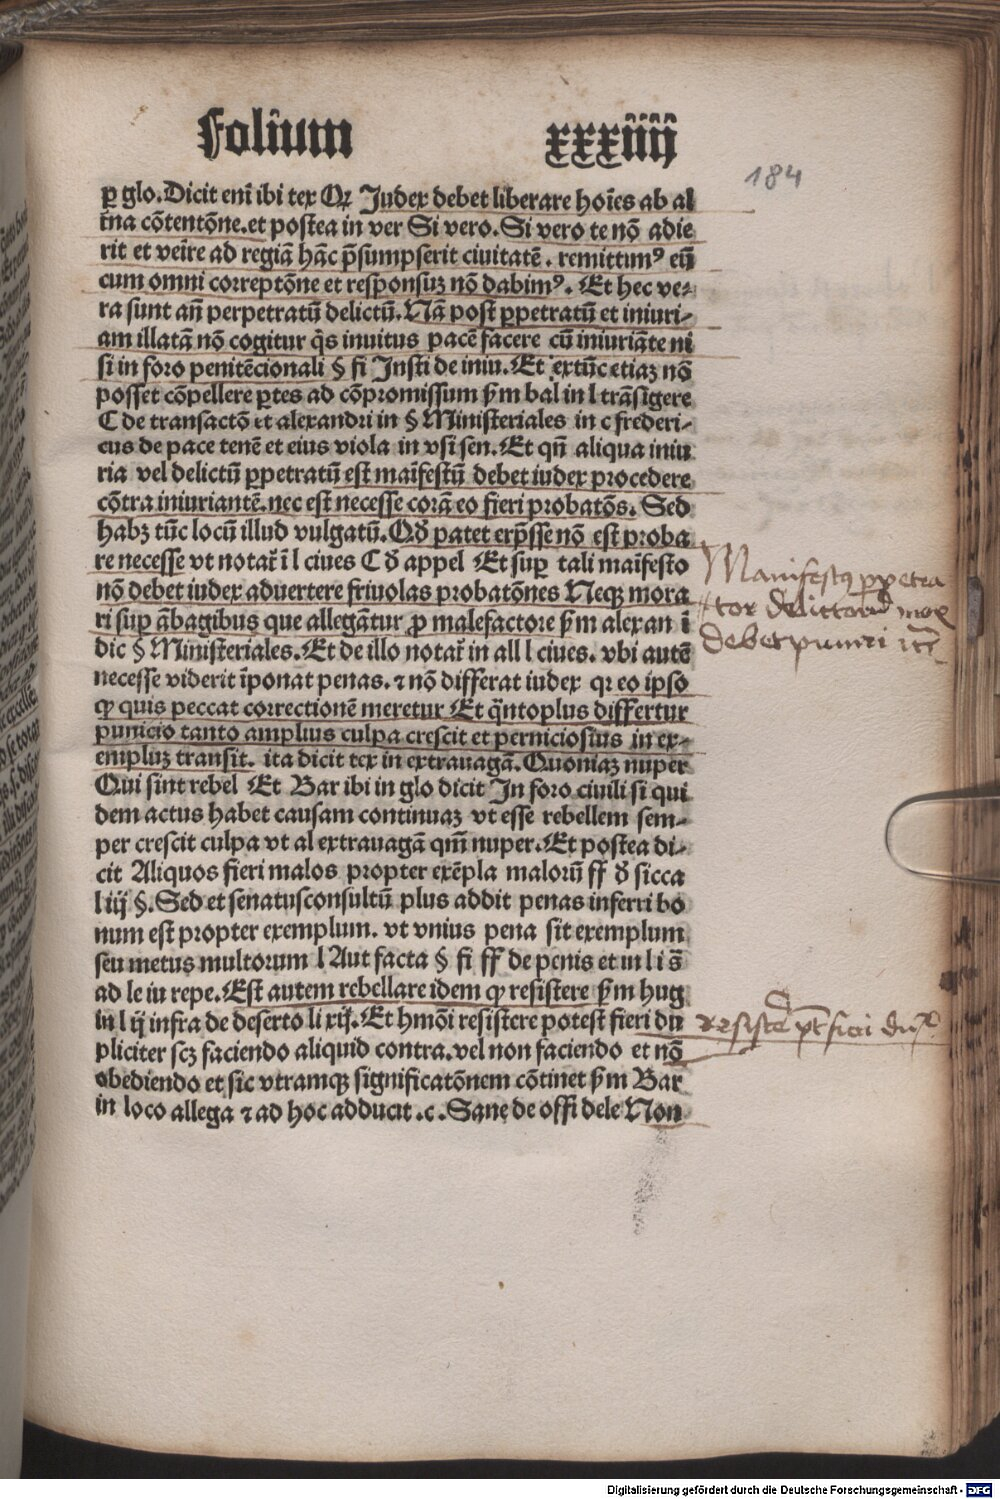 Folium xxxiiij
184
ꝑ glo. Dicit eni̅ ibi tex Qꝛ Iudex debet liberare hoi̅es ab al
t̅na co̅tento̅ne. et postea in ver Si vero. Si vero te no̅ adie
rit et vei̅re ad regia̅ ha̅c p̅sumpserit ciuitate̅. remittimꝰ eu̅
cum omni correpto̅ne et responsuꝫ no̅ dabimꝰ. Et hec ve⸗
ra sunt an̅ perpetratu̅ delictu̅. Na̅ post ꝑpetratu̅ et iniuri⸗
am illata̅ no̅ cogitur q̅s inuitus pace̅ facere cu̅ iniuria̅te ni
si in foro penite̅cionali § fi Insti de iniu. Et extu̅c etiaꝫ no̅
posset co̅pellere ꝑtes ad co̅promissum ẜm bal in l tra̅sigere
C de transacto̅ et alexandri in § Ministeriales in c frederi⸗
cus de pace tene̅ et eius viola in vsi sen. Et qn̅ aliqua iniu
ria vel delictu̅ ꝑpetratu̅ est mai̅festu̅ debet iudex procedere
co̅tra iniuriante̅. nec est necesse cora̅ eo fieri probato̅s. Sed
habꝫ tu̅c locu̅ illud vulgatu̅. Qd̅ patet erp̅sse no̅ est proba
re necesse vt notat̅ i̅ l ciues C d̅ appel Et suꝑ tali mai̅festo
no̅ debet iudex aduertere friuolas probato̅nes Neqꝫ mora
ri suꝑ a̅bagibus que allega̅tur ꝓ malefactore ẜm alexan i̅
dic § Ministeriales. Et de illo notat̅ in all l ciues. vbi aute̅
necesse viderit i̅ponat penas. ⁊ no̅ differat iudex qꝛ eo ipso
ꝙ quis peccat correctione̅ meretur Et q̅ntoplus differtur
punicio tanto amplius culpa crescit et perniciosius in ex⸗
empluꝫ transit. ita dicit tex in extrauaga̅. Quoniaꝫ nuper
Qui sint rebel Et Bar ibi in glo dicit In foro ciuili si qui
dem actus habet causam continuaꝫ vt esse rebellem sem⸗
per crescit culpa vt al extrauaga̅ qm̅ nuper. Et postea di⸗
cit Aliquos fieri malos propter exe̅pla maloru̅ ff d̅ sicca
l iij §. Sed et senatusconsultu̅ plus addit penas inferri bo
num est propter exemplum. vt vnius pena sit exemplum
seu metus multorum l Aut facta § fi ff de penis et in l i s̅
ad le iu repe. Est autem rebellare idem ꝙ resistere ẜm hug
in l ij infra de deserto li xij. Et hmo̅i resistere potest fieri du
pliciter scꝫ faciendo aliquid contra. vel non faciendo et no̅
obediendo et sic vtramqꝫ significato̅nem co̅tinet ẜm Bar
in loco allega ⁊ ad hoc adducit .c. Sane de offi dele Non
Manifestꝰ ꝑpetra
tor delictorū mox
debet puniri
resiste̅ pt̅ fieri dupꝉ
Digitalisierung gefördert durch die Deutsche Forschungsgemeinschaft - DFG